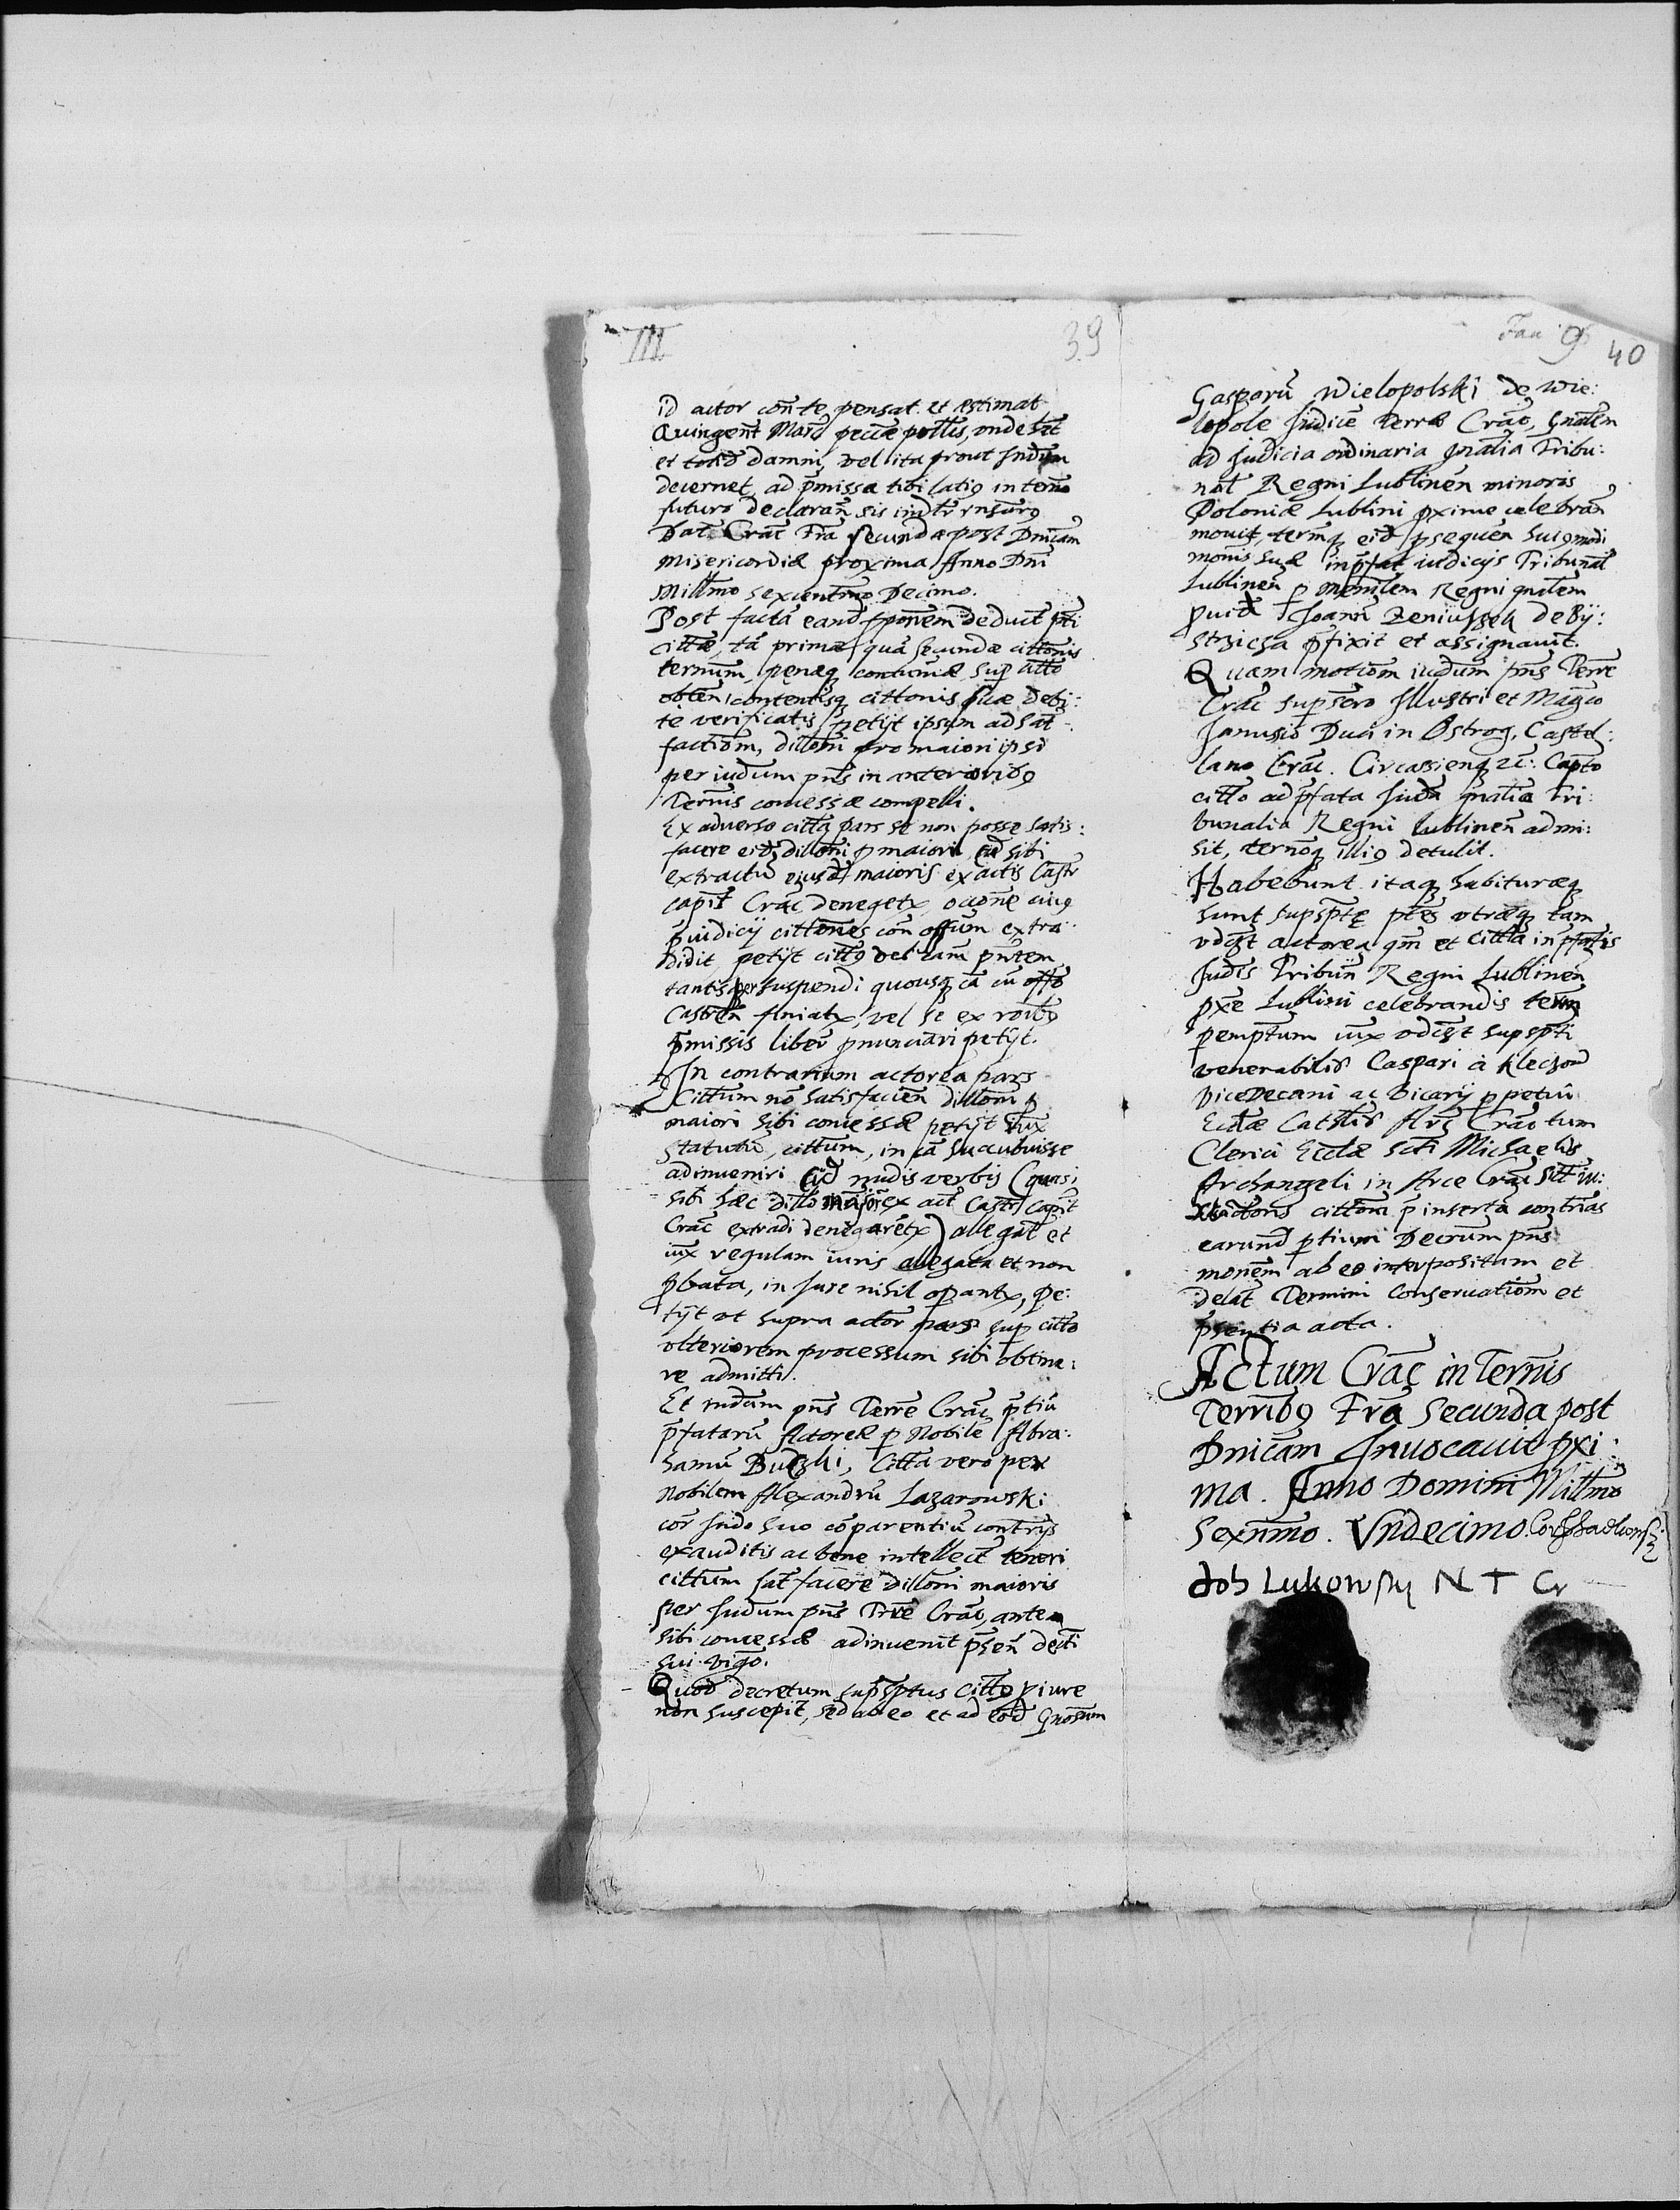 III
39
id actor con te pensat et æstimat
Quingent Marc pecuæ polлis, unde sat
et totid damni, vel ita prout Iudium
decernet, ad pmissa tibi latig in termo
futuro declaran sis iudtr rnsurg
Dat Crac Fra secunda post Dnicam
Misericordiæ proxima Anno Dni
Millmo sexcentmo Decimo.
Post factā eand ponem deduct pti
cittæ, tā primæ quā secundæ cittonis
termum, penæq contumæ sup citto
obten, contentisq cittonis suæ debi:
te verificatis petijt ipsum ad sat
factiom, dillom pro maiori ipsi
per iudium pns in anterioribg
Termis concessæ compelli.
Ex adverso citta pars se non posse satis:
facere eid dillomi p maiori, cū sibi
extractū eiusd maioris ex actis Castr
capit Crac denegetr, ocone cuig
puidicij cittones con offum extra
didit petijt cittg vel cam pntem
tantisper suspendi quousq ca cu offo
Castren finiatr, vel se ex roibg
pmissis liberū pnunciari petijt.
In contrarium actorea pars
Cittum nō satisfacien dillom p
maiori sibi concessæ petijt iux
Statutū, cittum, in cā succubuisse
adinveniri Eid nudis verbis (quasi
sibi hæc dillo maior ex act Castr Capit
Crac extradi denegaretr) allegat et
iux regulam iuris allegata et non
pbata, in iure nihil operantr, pe:
tijt ut supra actor pars sup citto
ulteriorem processum sibi obtine:
re admitti.
Et iudium pns Terræ Crac ptiū
pfatarū Actoreæ p Nobile Abra:
hamū Budzki, Citta vero per
Nobilem Alexandrū Lazarowski
cor Iudo suo cōparentiū contrijs
exauditis ac bene intellect teneri
cittum satfacere dillomi maioris
per Iudum pns Træ Crac, antea
sibi concessæ adinvenit psen decti
sui vigo.
Quod decretum supsptus Cittg p iure
non suscepit, sed ab eo et ad eod Gnosum
40
Gasparū Wielopolski de Wie:
lopole Iudicē Terræ Crac, Gnalem
ad Iudicia ordinaria gnalia Tribu:
nal Regni Lublinen minoris
Poloniæ Lublini pxime celebran
movit, termq eid psequen huigmodi
monis suæ in pfat iudicijs Tribunal
Lublinen p Menilem Regni gnalem
puid Ioann Zeniussek de By:
strzicha pfixit et assignavit.
Quam motiom iudium pns Terræ
Crac supsero Illustri et Magco
Janusio Duci in Ostrog, Castel:
lano Crac. Circassienq zc: Capto
citto ad pfata Iuda gnalia Tri:
bunalia Regni Lublinen admi:
sit, termoq illig detulit.
Habebunt itaq habituræq
sunt supsptæ ptes utræq tam
vdcst actorea qm et citta in pfatis
Iudis Tribun Regni Lublinen
pxe Lublini celebrandis term
pemptum iux vdcst supspti
venerabilis Caspari à Kleczow
Vicedecani ac Vicarij ppetui
Ecclæ Cathlis Arc Crac tum
Clerici Ecclæ Scti Michaelis
Archangeli in Arce Crac sit iu:
Actoris cittom p inserta contrias
earund ptium Decrum pns
monem ab eo interpositam et
delat Termini Conservatiom et
psentia acta.
Actum Crac in Termis
Terribg Fra Secunda post
Dnicam Invocavit pxi:
ma. Anno Domini Millmo
Sexnmo. Undecimo.
Job Lukowsky N T Cr